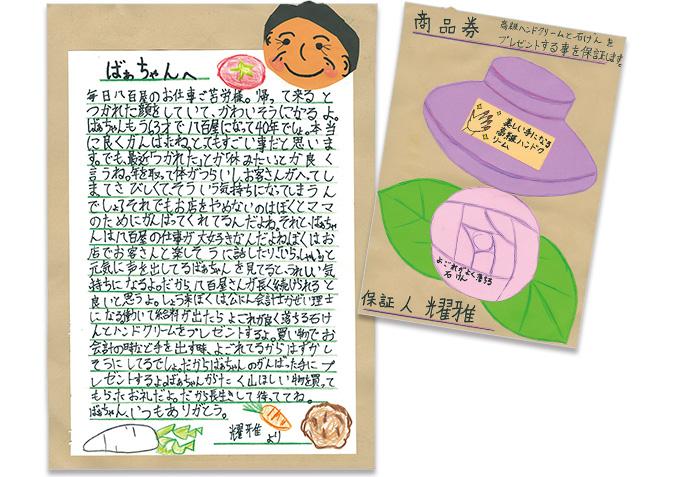 ばぁちゃんへ
毎日八百屋のお仕事ご苦労様。帰って来ると
つかれた顔をしていて、かわいそうになるよ。
ばぁちゃんもう63才で八百屋になって40年でしょ。本当
に良くがんばたね。とてもすごい事だと思いま
す。でも、最近「つかれた」とか「休みたい」とか良く
言うね。年を取って体がつらいしお客さんがへってし
まてさびしくてそういう気持ちになってしまうん
でしょ。それでもお店をやめないのはぼくとママ
のためにがんばってくれてるんだよね。それと、ばぁちゃ
んは八百屋の仕事が大好きなんだよね。ぼくはお
店でお客さんと楽しそうに話したり「いらっしゃい」と
元気に声を出してるばぁちゃんを見てるとうれしい気
持ちになるよ。だから八百屋さんが長く続けられると
良いと思うよ。しょう来ぼくは公にん会計士かぜい理士
になる。働いて給料が出たらよごれが良く落ちる石け
んとハンドクリームをプレゼントするよ。買い物でお
会計の時など手を出す時、よごれてるからはずかし
そうにしてるでしょ。だからばぁちゃんのがんばった手にプ
レゼントするよ。ばぁちゃんからたくさんほしい物を買って
もらったお礼だよ。だから長生きして待っててね。
ばぁちゃん、いつもありがとう。
耀雅より
商品券
高級ハンドクリームと石けんを
プレゼントする事を保証します。
美しい手になる
高級ハンドク
リーム
よごれがよく落ちる
石けん
保証人 耀雅